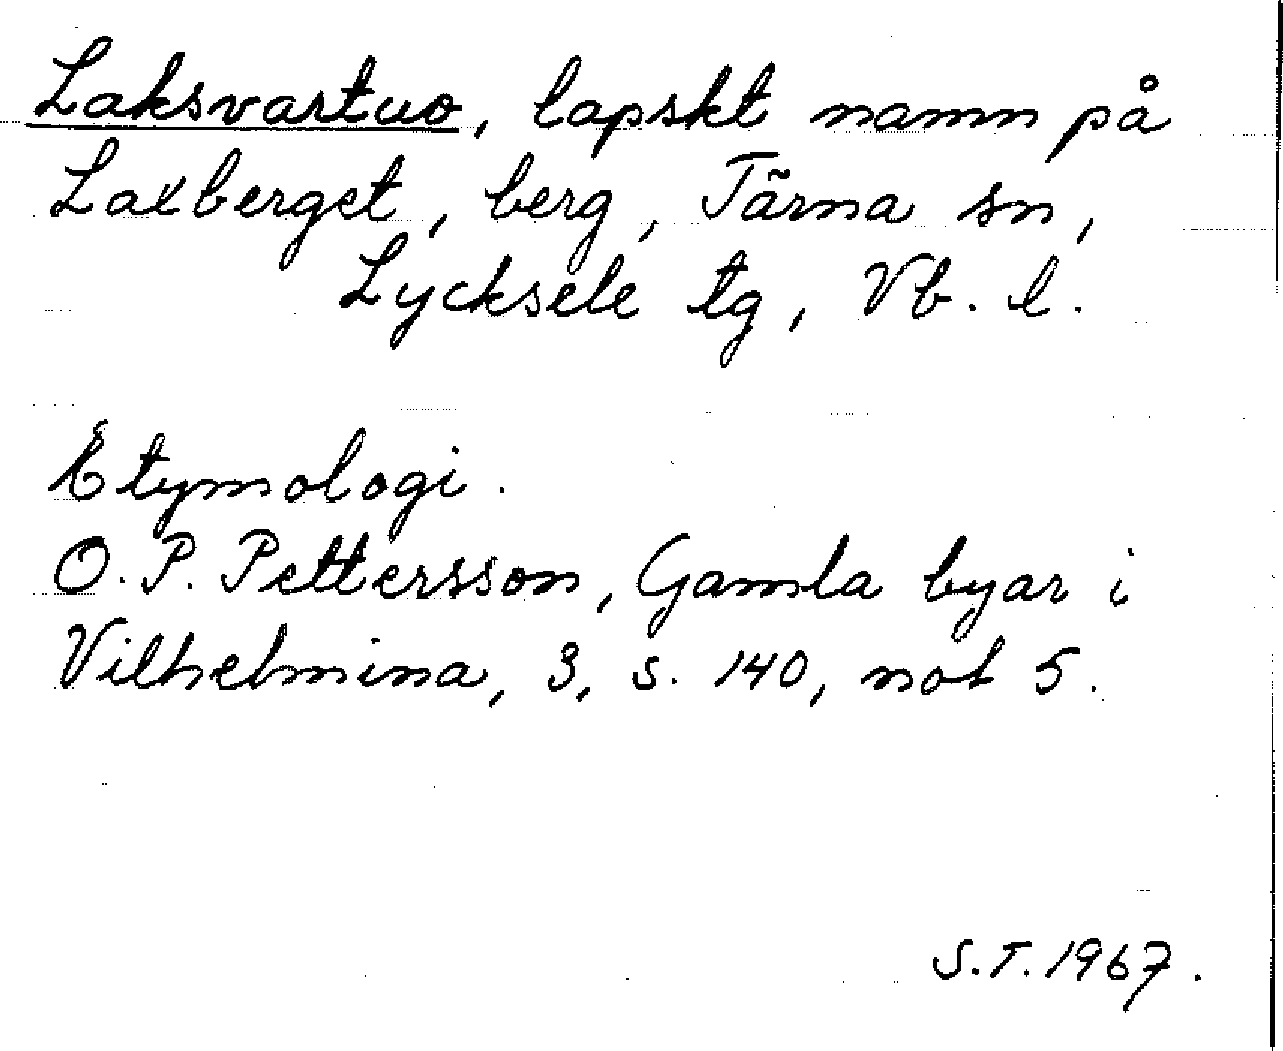 Laksvartuo, lapskt namn på
Laxberget, berg, Tärna sn,
Lycksele tg, Vb. l.
Etymologi.
O. P. Pettersson, Gamla byar i
Vilhelmina, 3, s. 140, not 5.
S.T. 1967.